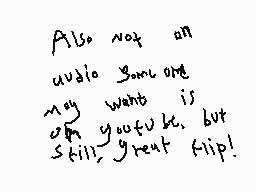 Also not an
audio someone
may want is
on youtube, but
still, great flip!